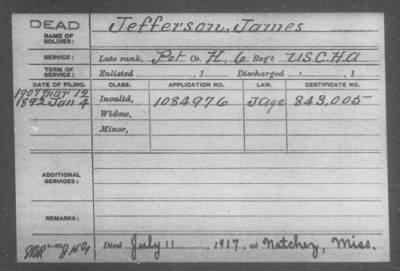 DEAD
NAME OF SOLDIER: Jefferson, James
SERVICE: Late rank, Pvt Co. H, 6 Reg't U.S.C.H.A
TERM OF SERVICE: Enlisted , 1 Discharged , 1
DATE OF FILING. CLASS. APPLICATION NO. LAW. CERTIFICATE NO.
1907 Mar 12
1892 Jan 4 Invalid, 1084976 J age 843,005
Widow,
Minor,
ADDITIONAL SERVICES:
REMARKS:
Died July 11, 1917, at Natchez, Miss.